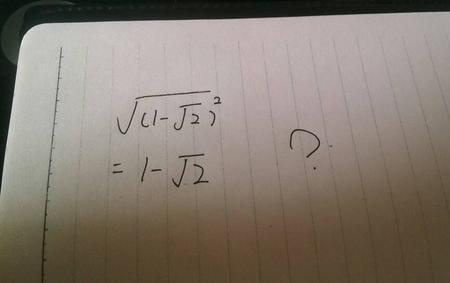 √(1-√2)²
= 1-√2 ?